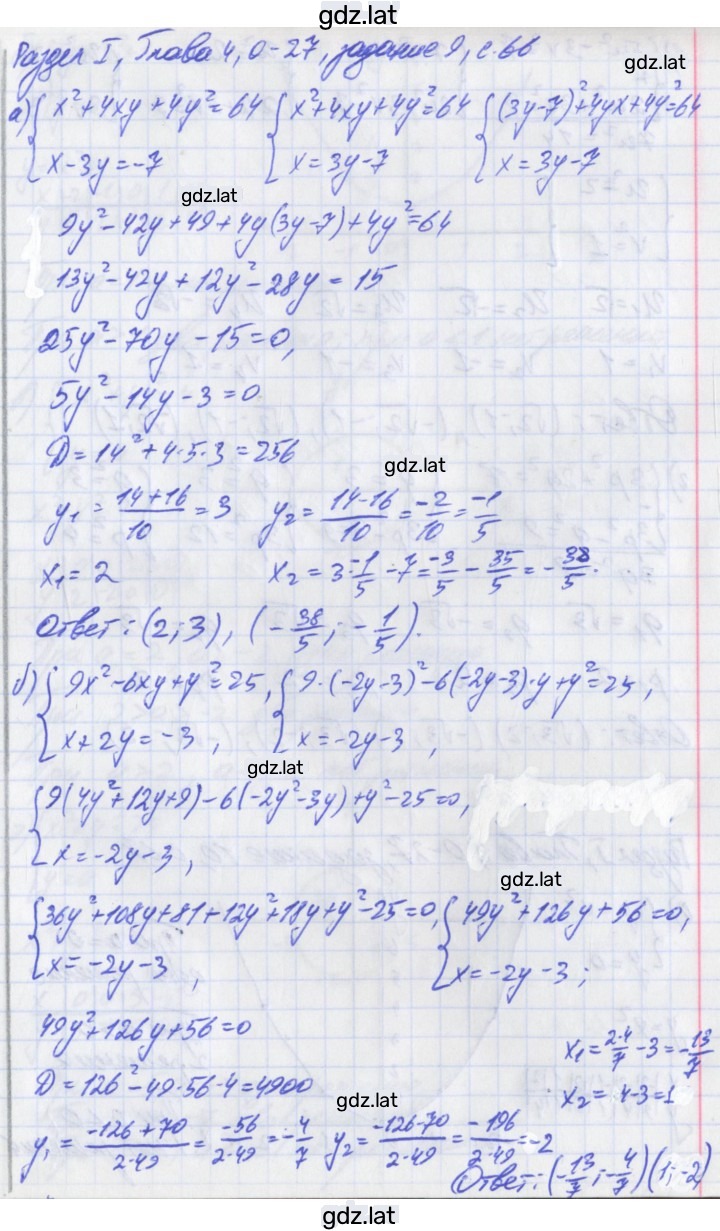 gdz.lat
Раздел I, Глава 4, О-27, задание 9, с. 66
gdz.lat
а) { x² + 4xy + 4y² = 64 { x² + 4xy + 4y² = 64 { (3y-7)² + 4yx + 4y² = 64
x - 3y = -7 x = 3y - 7 x = 3y - 7
gdz.lat
9y² - 42y + 49 + 4y(3y-7) + 4y² = 64
13y² - 42y + 12y² - 28y = 15
25y² - 70y - 15 = 0,
5y² - 14y - 3 = 0
D = 14² + 4·5·3 = 256
gdz.lat
y₁ = (14+16)/10 = 3 y₂ = (14-16)/10 = -2/10 = -1/5
x₁ = 2 x₂ = 3·-1/5 - 7 = -3/5 - 35/5 = -38/5.
Ответ: (2; 3), (-38/5; -1/5).
б) { 9x² - 6xy + y² = 25, { 9·(-2y-3)² - 6(-2y-3)·y + y² = 25,
x + 2y = -3, x = -2y - 3,
gdz.lat
{ 9(4y² + 12y + 9) - 6(-2y² - 3y) + y² - 25 = 0,
x = -2y - 3,
gdz.lat
{ 36y² + 108y + 81 + 12y² + 18y + y² - 25 = 0, { 49y² + 126y + 56 = 0,
x = -2y - 3, x = -2y - 3;
49y² + 126y + 56 = 0
x₁ = 2·4/7 - 3 = -13/7
D = 126² - 49·56·4 = 4900
x₂ = 4 - 3 = 1
gdz.lat
y₁ = (-126+70)/(2·49) = -56/(2·49) = -4/7 y₂ = (-126-70)/(2·49) = -196/(2·49) = -2
Ответ: (-13/7; -4/7) (1; -2)
gdz.lat